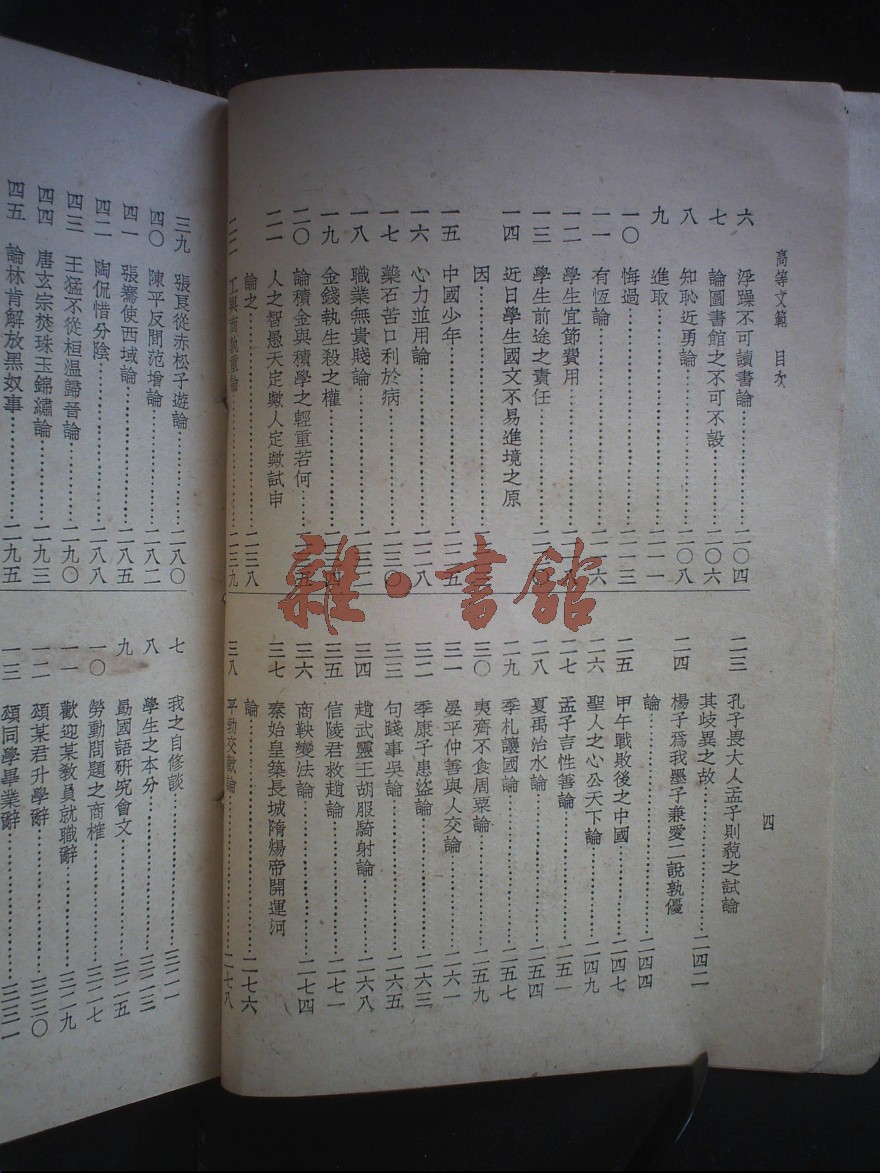 高等文範　目次
四
六　浮躁不可讀書論…………二〇四
七　論圖書館之不可不設…………二〇六
八　知恥近勇論…………二〇八
九　進取…………二一一
一〇　悔過…………二一三
一一　有恆論…………二一六
一二　學生宜節費用
一三　學生前途之責任
一四　近日學生國文不易進境之原
因…………
一五　中國少年…………二二五
一六　心力並用論…………二二八
一七　藥石苦口利於病…………二三〇
一八　職業無貴賤論…………二三二
一九　金錢執生殺之權
二〇　論積金與積學之輕重若何
二一　人之智愚天定歟人定歟試申
論之…………二三八
二二　工與商孰重論…………二三九
二三　孔子畏大人孟子則藐之試論
其歧異之故…………二四二
二四　楊子爲我墨子兼愛二說孰優
論…………二四四
二五　甲午戰敗後之中國…………二四七
二六　聖人之心公天下論…………二四九
二七　孟子言性善論…………二五一
二八　夏禹治水論…………二五四
二九　季札讓國論…………二五七
三〇　夷齊不食周粟論…………二五九
三一　晏平仲善與人交論…………二六一
三二　季康子患盜論…………二六三
三三　句踐事吳論…………二六五
三四　趙武靈王胡服騎射論…………二六八
三五　信陵君救趙論…………二七一
三六　商鞅變法論…………二七四
三七　秦始皇築長城隋煬帝開運河
論…………二七六
三八　平勃交歡論…………二七八
雜·書館
三九　張良從赤松子遊論…………二八〇
四〇　陳平反間范增論…………二八二
四一　張騫使西域論…………二八五
四二　陶侃惜分陰…………二八八
四三　王猛不從桓溫歸晉論…………二九〇
四四　唐玄宗焚珠玉錦繡論…………二九三
四五　論林肯解放黑奴事…………二九五
七　我之自修談…………三二一
八　學生之本分…………三二三
九　勗國語研究會文…………三二五
一〇　勞動問題之商榷…………三二七
一一　歡迎某教員就職辭…………三二九
一二　頌某君升學辭…………三三〇
一三　頌同學畢業辭…………三三一